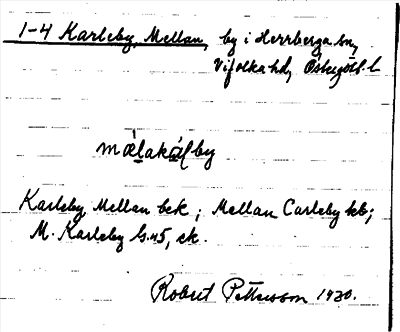 1-4 Karleby, Mellan, by i Herrberga sn,
Vifolka hd, Östergötl. l
mälakálby
Karleby, Mellan bek; Mellan Carleby kb;
M. Karleby G. 45, ek.
Robert Pettersson 1930.